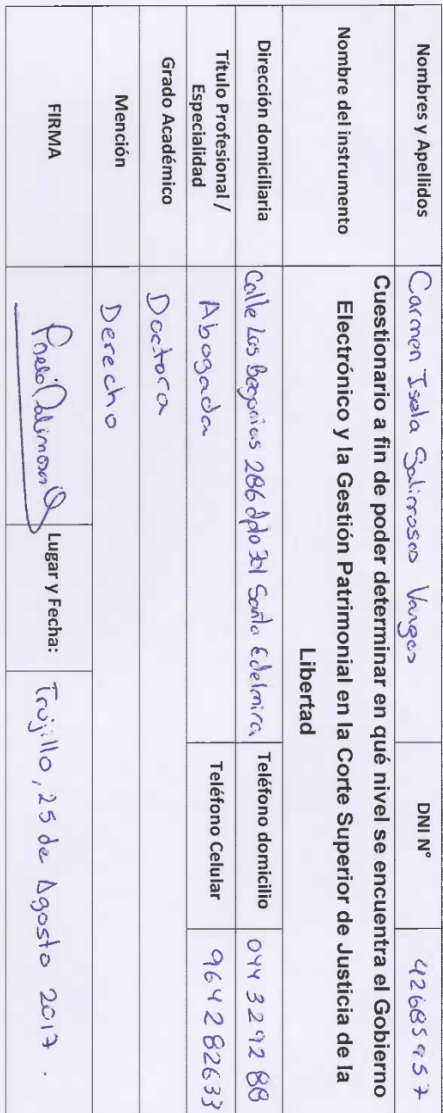 Nombres y Apellidos Carmen Isela Salirrosas Vargas DNI N° 42685957
Nombre del instrumento Cuestionario a fin de poder determinar en qué nivel se encuentra el Gobierno
Electrónico y la Gestión Patrimonial en la Corte Superior de Justicia de la
Libertad
Dirección domiciliaria Calle Las Begonias 286 dpto 201 Santa Edelmira Teléfono domicilio 044 329288
Título Profesional /
Especialidad Abogada Teléfono Celular 964282633
Grado Académico Doctora
Mención Derecho
FIRMA Lugar y Fecha: Trujillo, 25 de Agosto 2017.